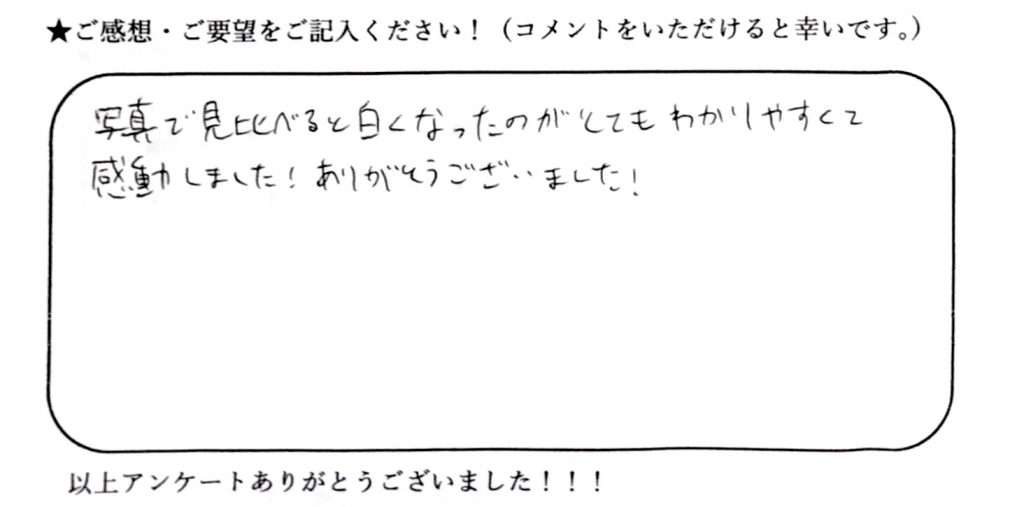 ★ご感想・ご要望をご記入ください！（コメントをいただけると幸いです。）
写真で見比べると白くなったのがとてもわかりやすくて
感動しました！ありがとうございました！
以上アンケートありがとうございました！！！